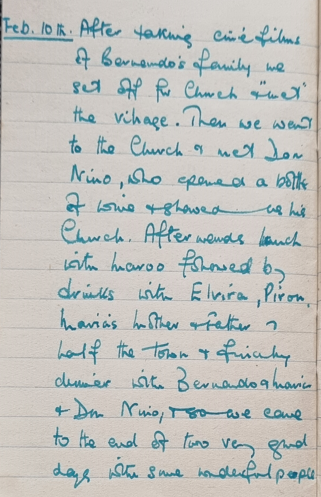 Feb. 10th. After taking ciné films
of Bernardo's family we
set off for Church & "met"
the village. Then we went
to the Church & met Don
Nino, who opened a bottle
of wine & showed us his
Church. Afterwards lunch
with Marco followed by
drinks with Elvira, Piron,
Maria's mother & father &
half the Town & finally
dinner with Bernardo & Maria
& Don Nino, & so we came
to the end of two very good
days with some wonderful people